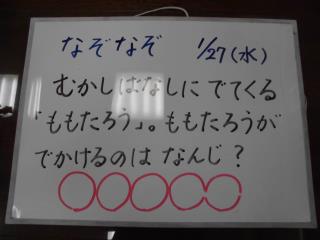 なぞなぞ 1/27(水)
むかしばなしに でてくる
「ももたろう」。ももたろうが
でかけるのは なんじ?
○○○○○